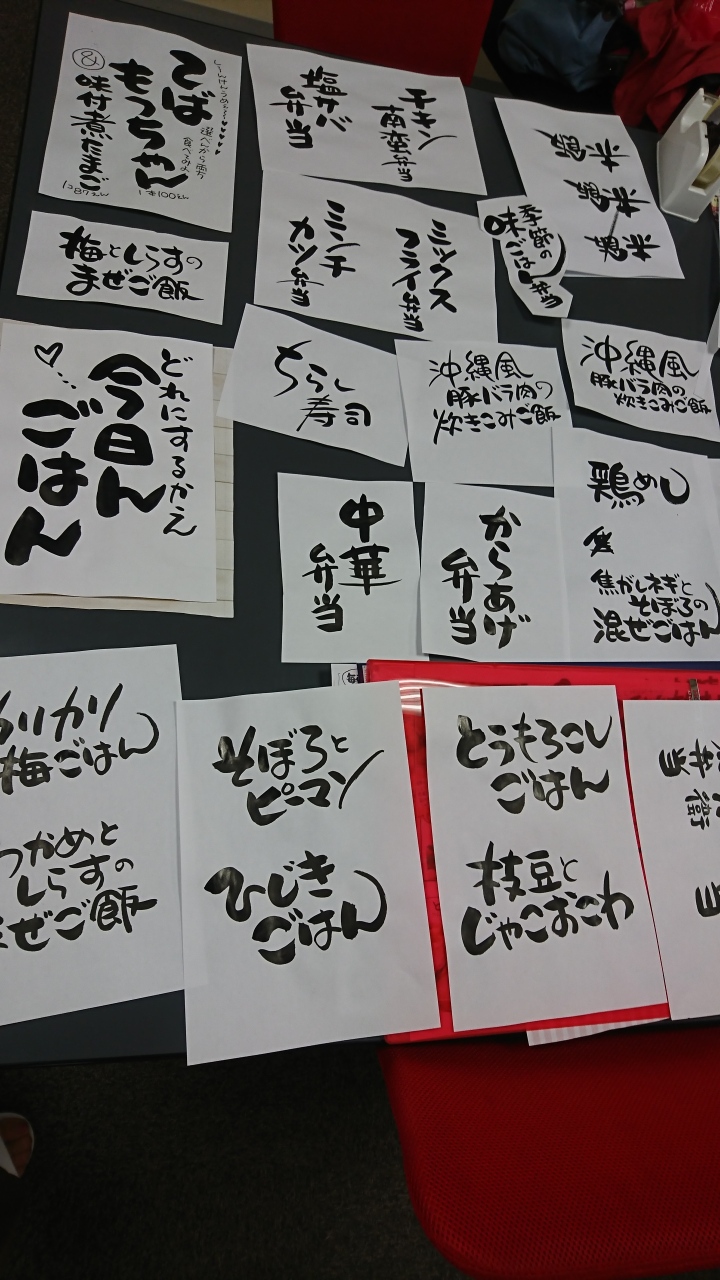 てば
もっちゃん
&
味付煮たまご
1本100えん
1コ87えん
チキン
南蛮弁当
塩サバ
弁当
ミックス
フライ弁当
ミンチ
カツ弁当
季節の
味ごはん
弁当
梅としらすの
まぜご飯
どれにするかえ
今日ん
ごはん
ちらし
寿司
沖縄風
豚バラ肉の
炊きこみご飯
沖縄風
豚バラ肉の
炊きこみご飯
中華
弁当
からあげ
弁当
鶏めし
焦がしネギと
そぼろの
混ぜごはん
カリカリ
梅ごはん
わかめと
しらすの
まぜご飯
そぼろと
ピーマン
ひじき
ごはん
とうもろこし
ごはん
枝豆と
じゃこおこわ
弁当